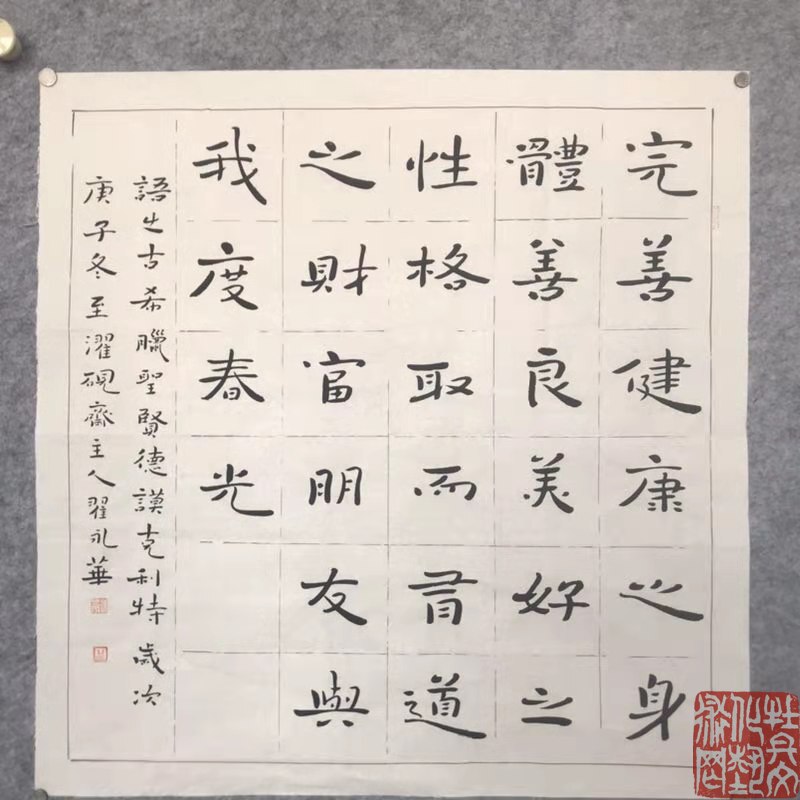 完善健康之身
體善良美好之
性格取而有道
之財富朋友與
我度春光
語出古希臘聖賢德謨克利特歲次
庚子冬至濯硯齋主人翟永華